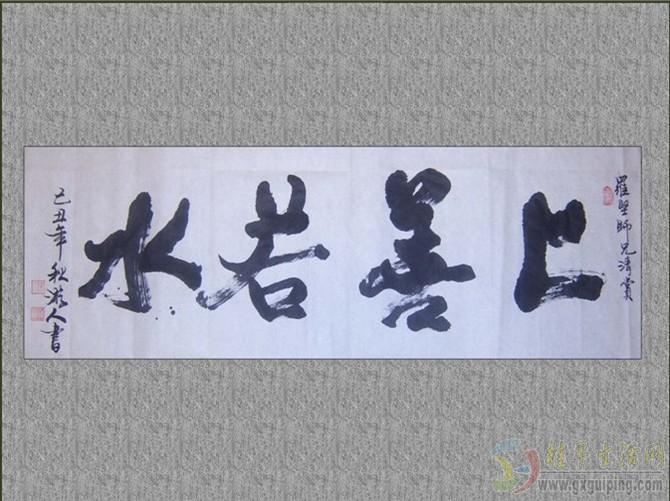 羅堅師兄清賞
上善若水
己丑年秋游人書
桂平生活网
www.gxguiping.com